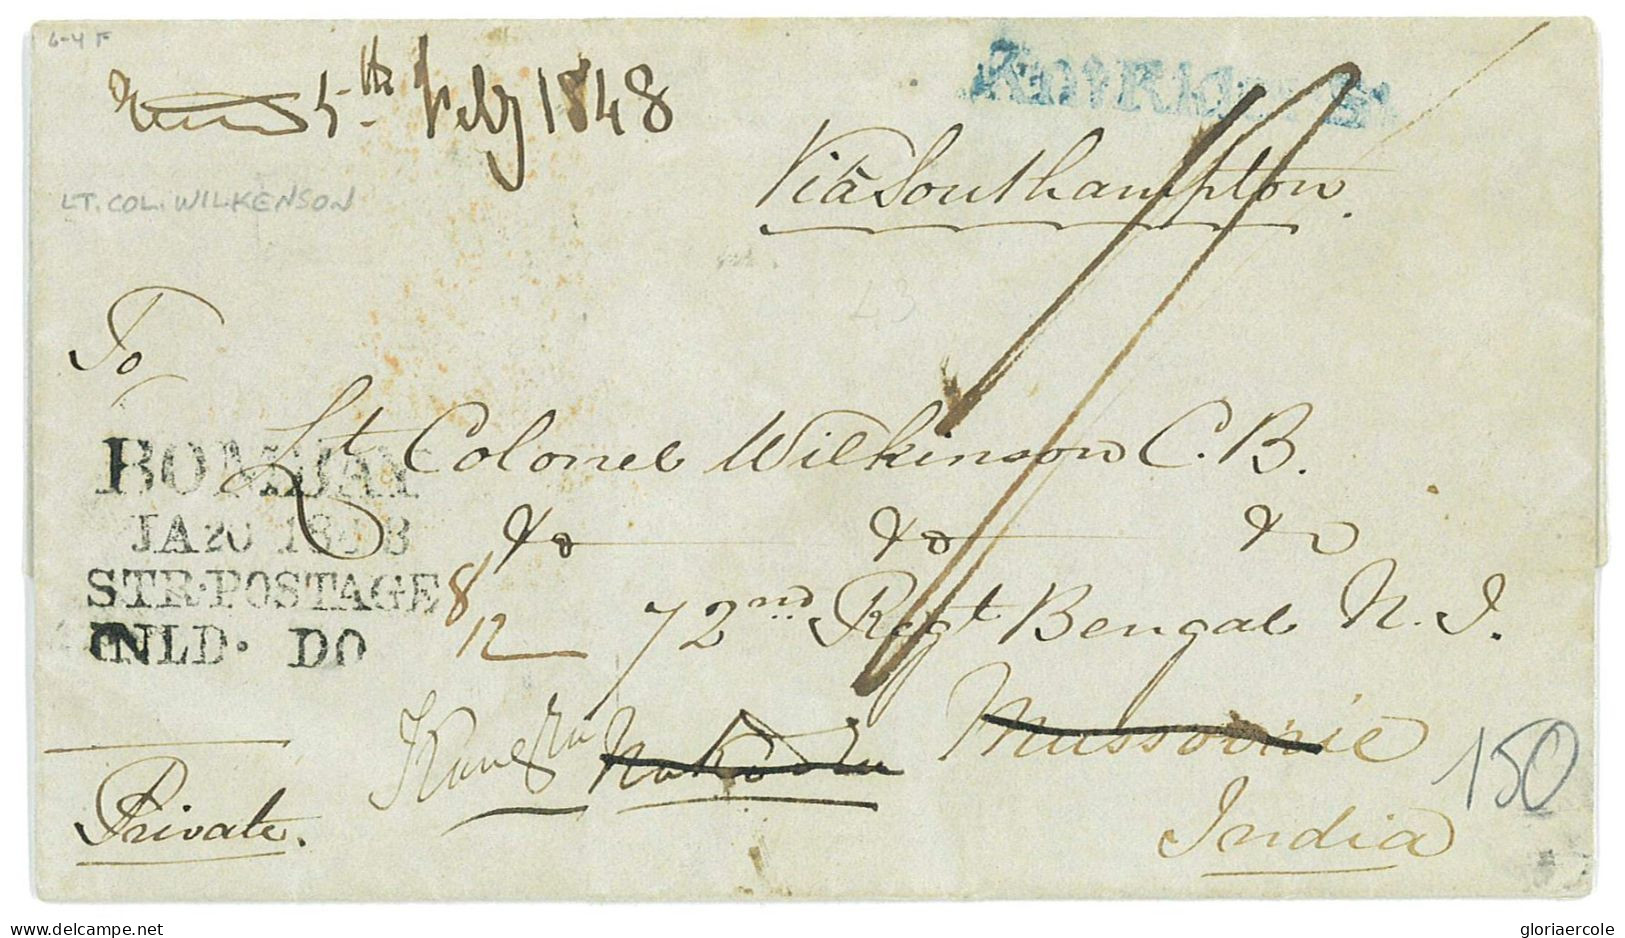 6-4 F
5th Feby 1848
LT. COL. WILKENSON
Via Southampton.
To
Lt Colonel Wilkinson C.B.
&c &c &c
72nd Regt Bengal N. I.
BOMBAY
JA 20 1848
STR. POSTAGE
INLD. DO
8/12
Kangra Mussoorie
India
Private.
150
delcampe.net
gloriaercole